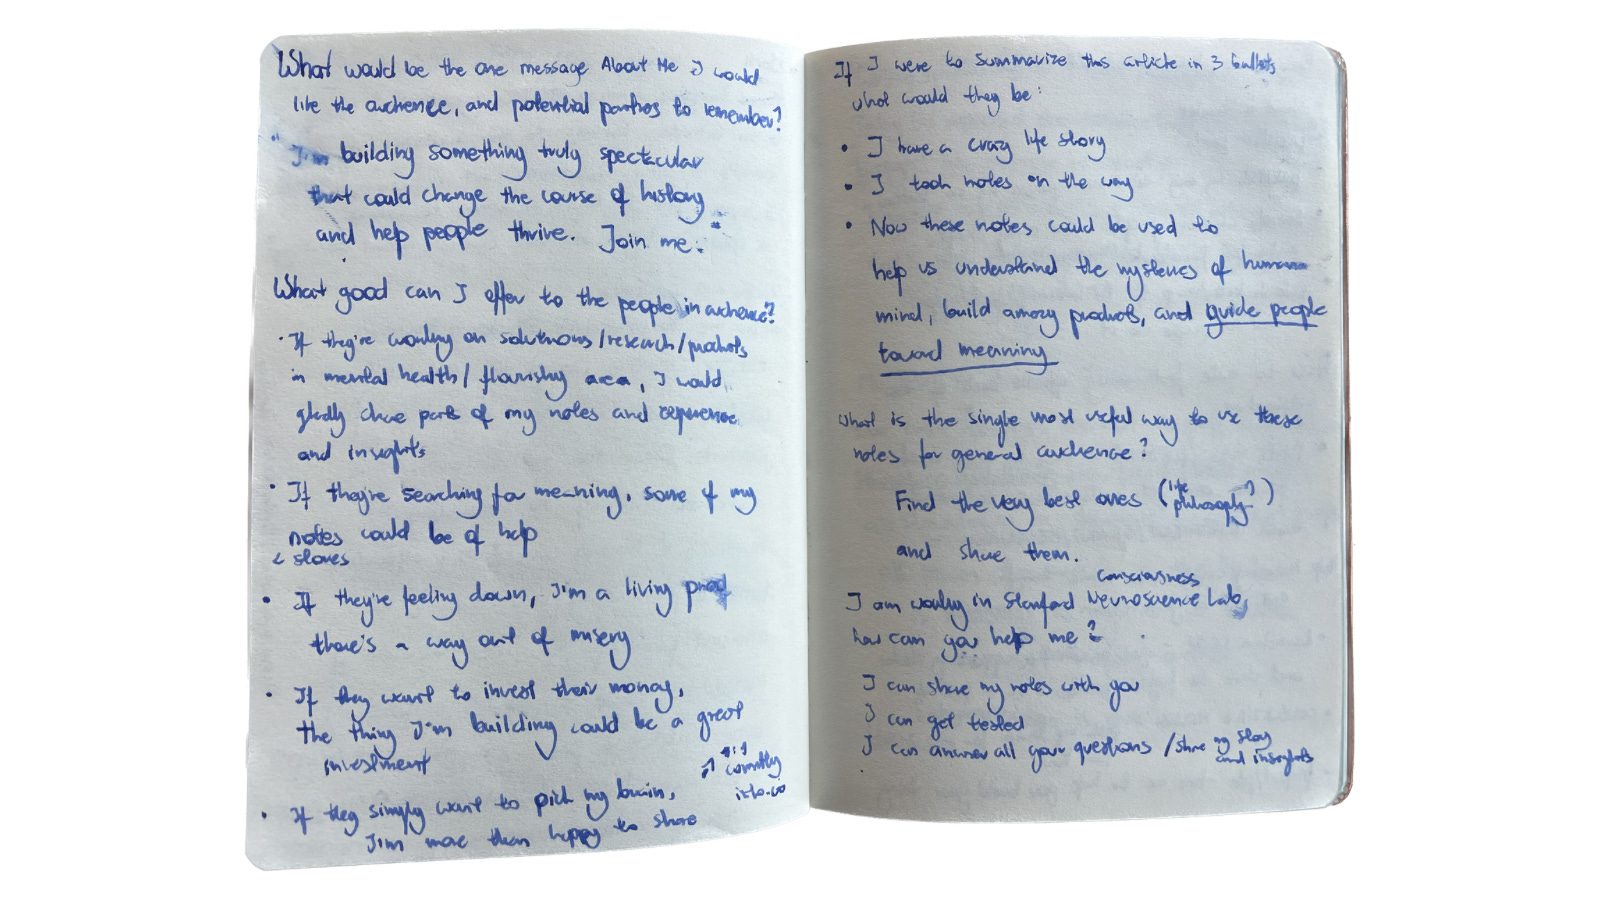 What would be the one message About Me I would
like the audience, and potential partners to remember?
"I'm building something truly spectacular
that could change the course of history
and help people thrive. Join me."
What good can I offer to the people in audience?
• If they're working on solutions/research/products
in mental health/flourishing area, I would
gladly share parts of my notes and experience
and insights
• If they're searching for meaning, some of my
notes could be of help
& stories
• If they're feeling down, I'm a living proof
there's a way out of misery
• If they want to invest their money,
the thing I'm building could be a great
investment
• If they simply want to pick my brain,
I'm more than happy to share
1:1
If I were to summarize this article in 3 bullets
what would they be:
• I have a crazy life story
• I took notes on the way
• Now these notes could be used to
help us understand the mysteries of human
mind, build amazing products, and guide people
toward meaning
What is the single most useful way to use these
notes for general audience?
Find the very best ones (life philosophy?)
and share them.
consciousness
I am working in Stanford Neuroscience Lab,
how can you help me?
I can share my notes with you
I can get tested
I can answer all your questions / share my story
and insights